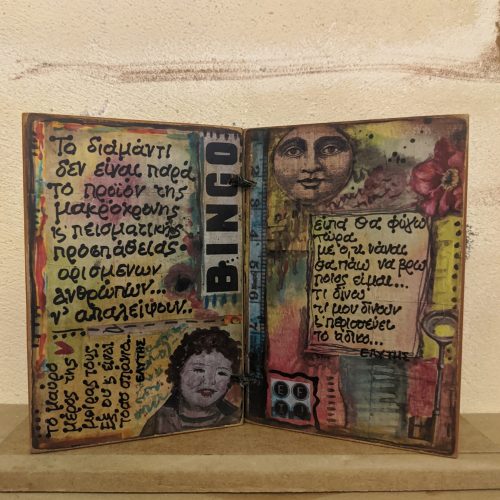 Το διαμάντι
δεν είναι παρά
το προϊόν της
μακρόχρονης
κ' πεισματικής
προσπάθειας
ορισμένων
ανθρώπων...
ν' απαλείψουν..
το μαύρο
μέρος της
μοίρας τους
εξ' ου κ' είναι
τόσο σπάνιο..
ΕΛΥΤΗΣ
BINGO
2 3 4 5 6 7
είπα θα φύγω
τώρα,
με ό,τι νάναι
θα πάω να βρω
ποιος είμαι...
τι δίνω
τι μου δίνουν
κ' περισσεύει
το άδικο...
ΕΛΥΤΗΣ